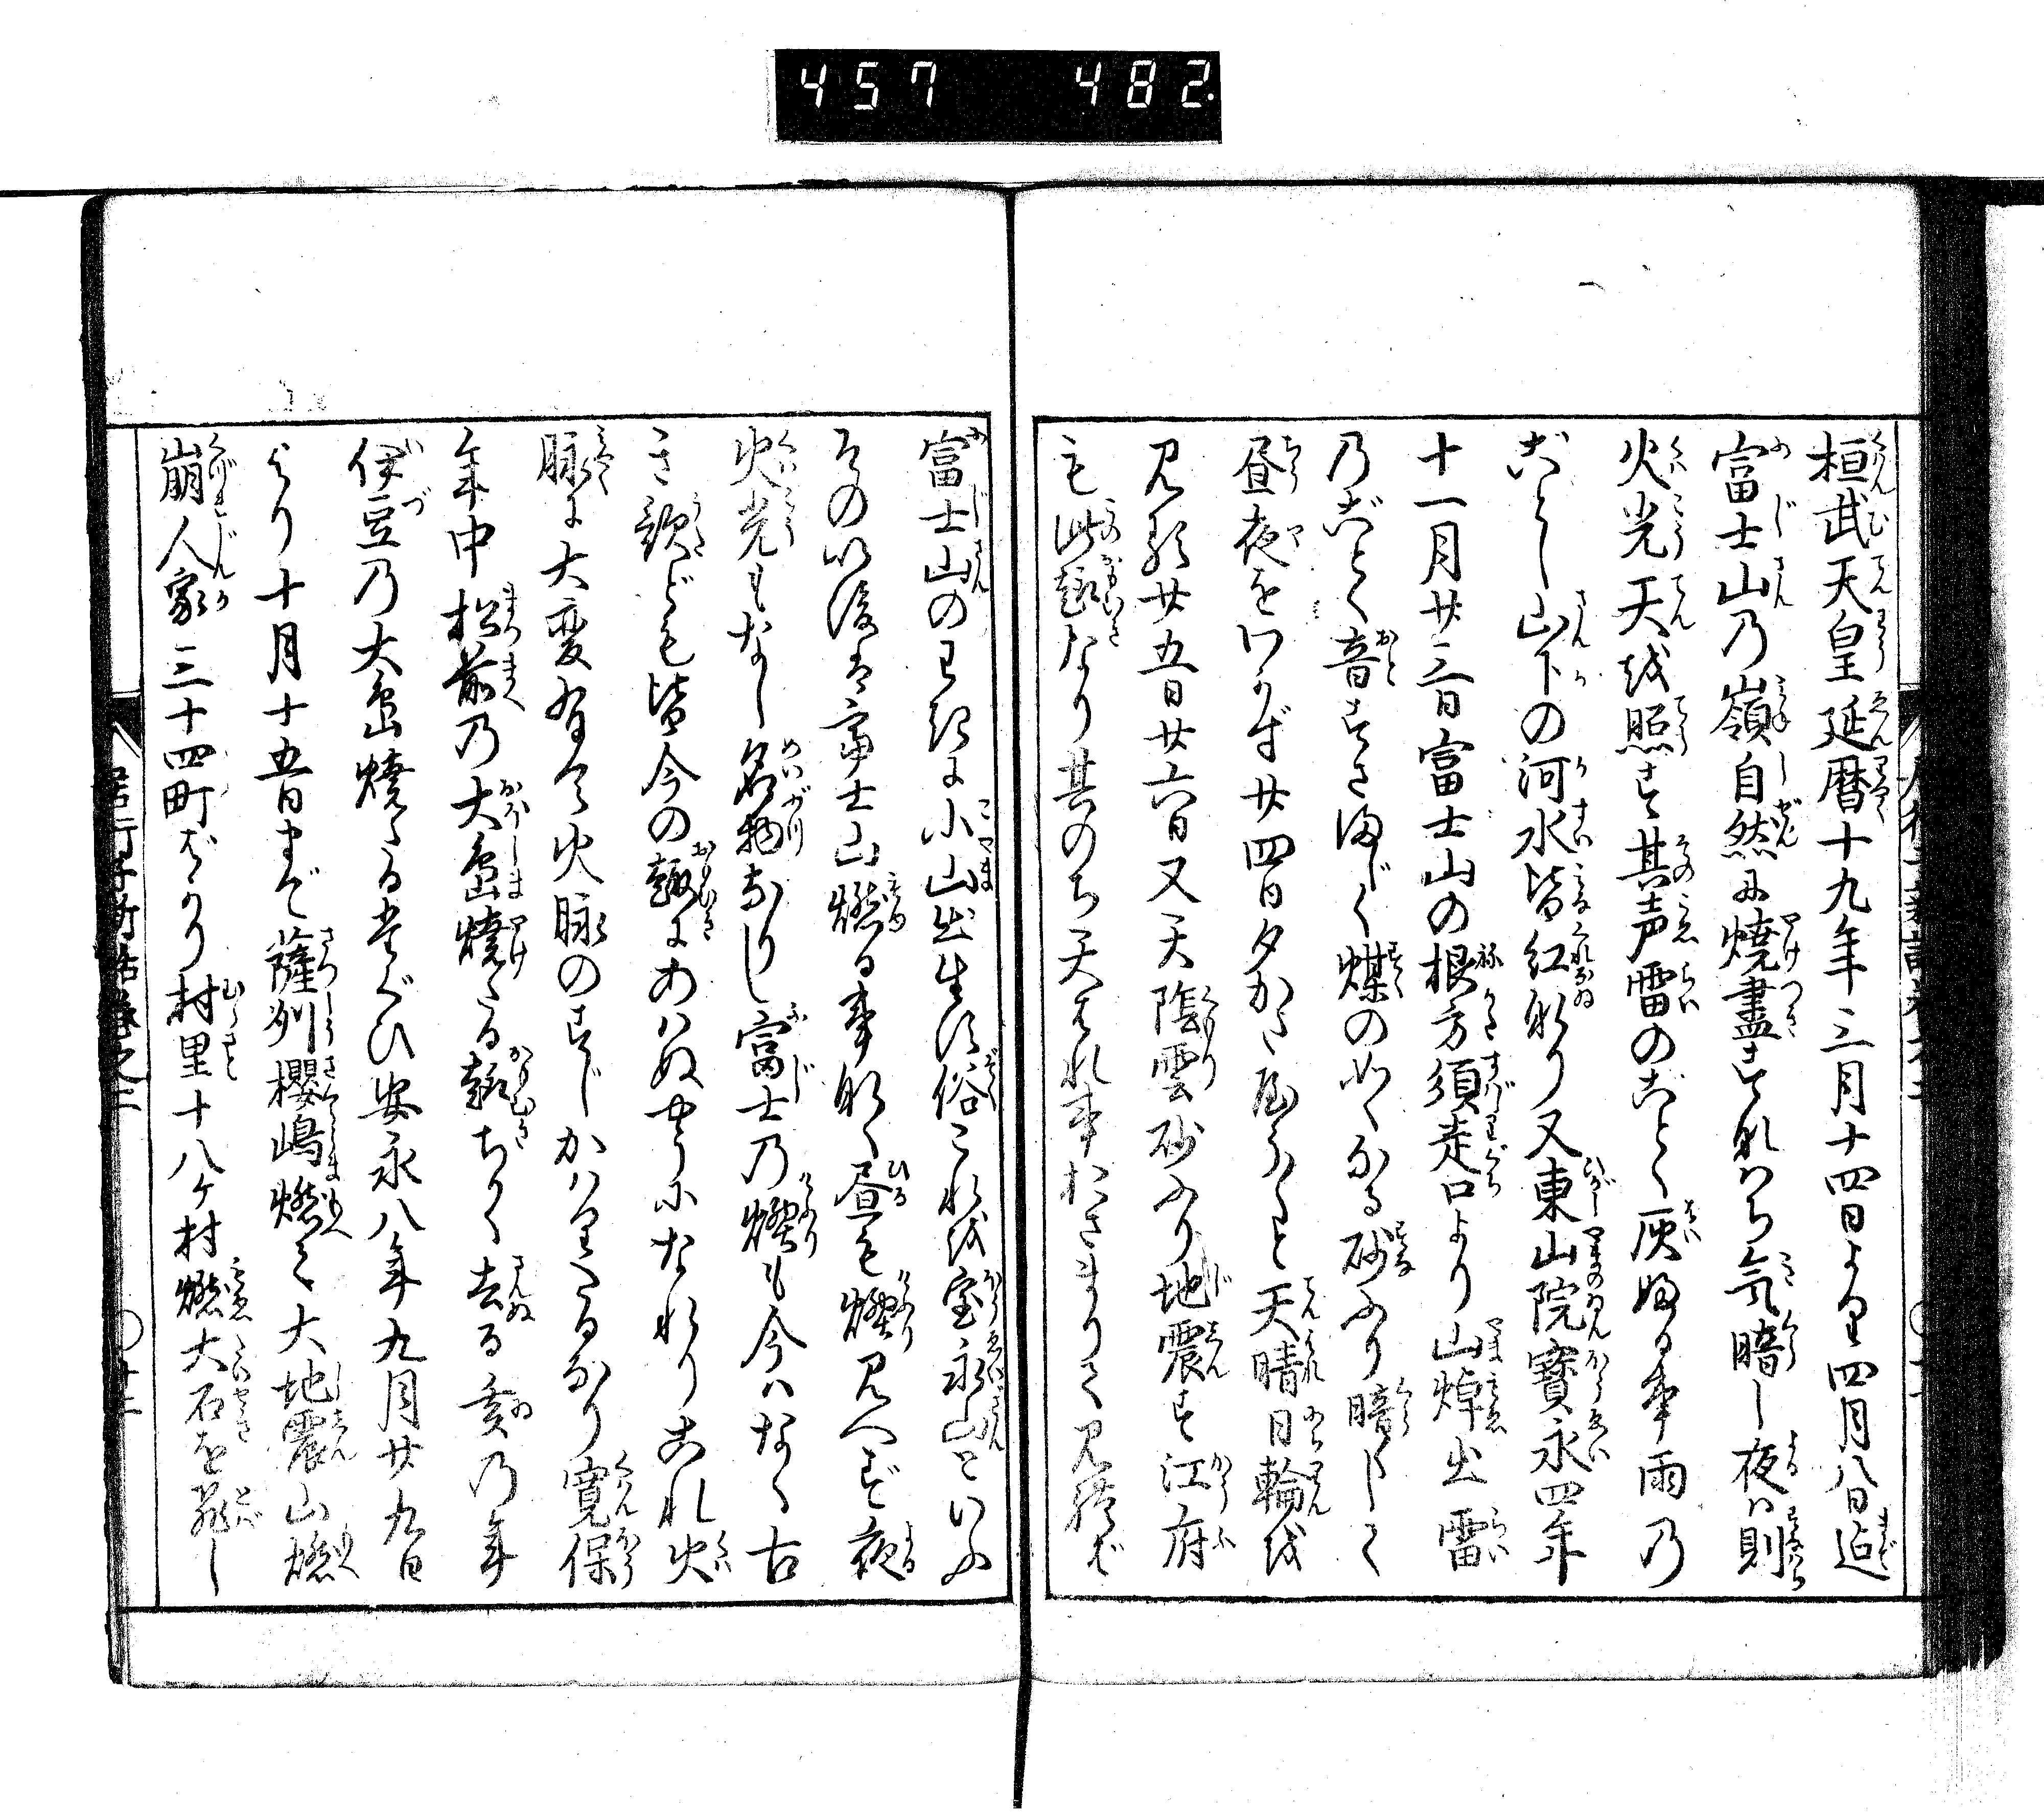 457 482
桓武天皇延暦十九年三月十四日より四月八日迄
富士山乃嶺自然に焼盡すすなわち気暗し夜は則
火光天を照す其声雷のごとく灰ふる事雨乃
ごとし山下の河水皆紅なり又東山院寳永四年
十一月廿三日富士山の根方須走口より山焼出雷
乃ごとく音すさまじく煤の如くなる砂ふり暗くして
昼夜をわかず廿四日夕かた
天晴日輪を
見れ廿五日廿六日又天陰雲砂ふり地震す江府
も此趣なり其のち天はれ事おさまりて見れば
富士山のわきに小山出生す俗これを宝永山といふ
その以後は富士山燃る事なく昼も煙見へず夜
火光もなし名物なりし富士乃煙も今ハなく古
き歌ども皆今の趣にあハぬやうになれりこれ火
脉に大変有て火脉のすじかハりたるなり寛保
年中松前乃大島焼たる趣ちかく去る亥乃年
伊豆乃大島焼たるたぐひ安永八年九月廿九日
より十月十五日まで薩州櫻嶋燃て大地震山燃
崩人家三十四町ばかり村里十八ケ村燃大石を飛し